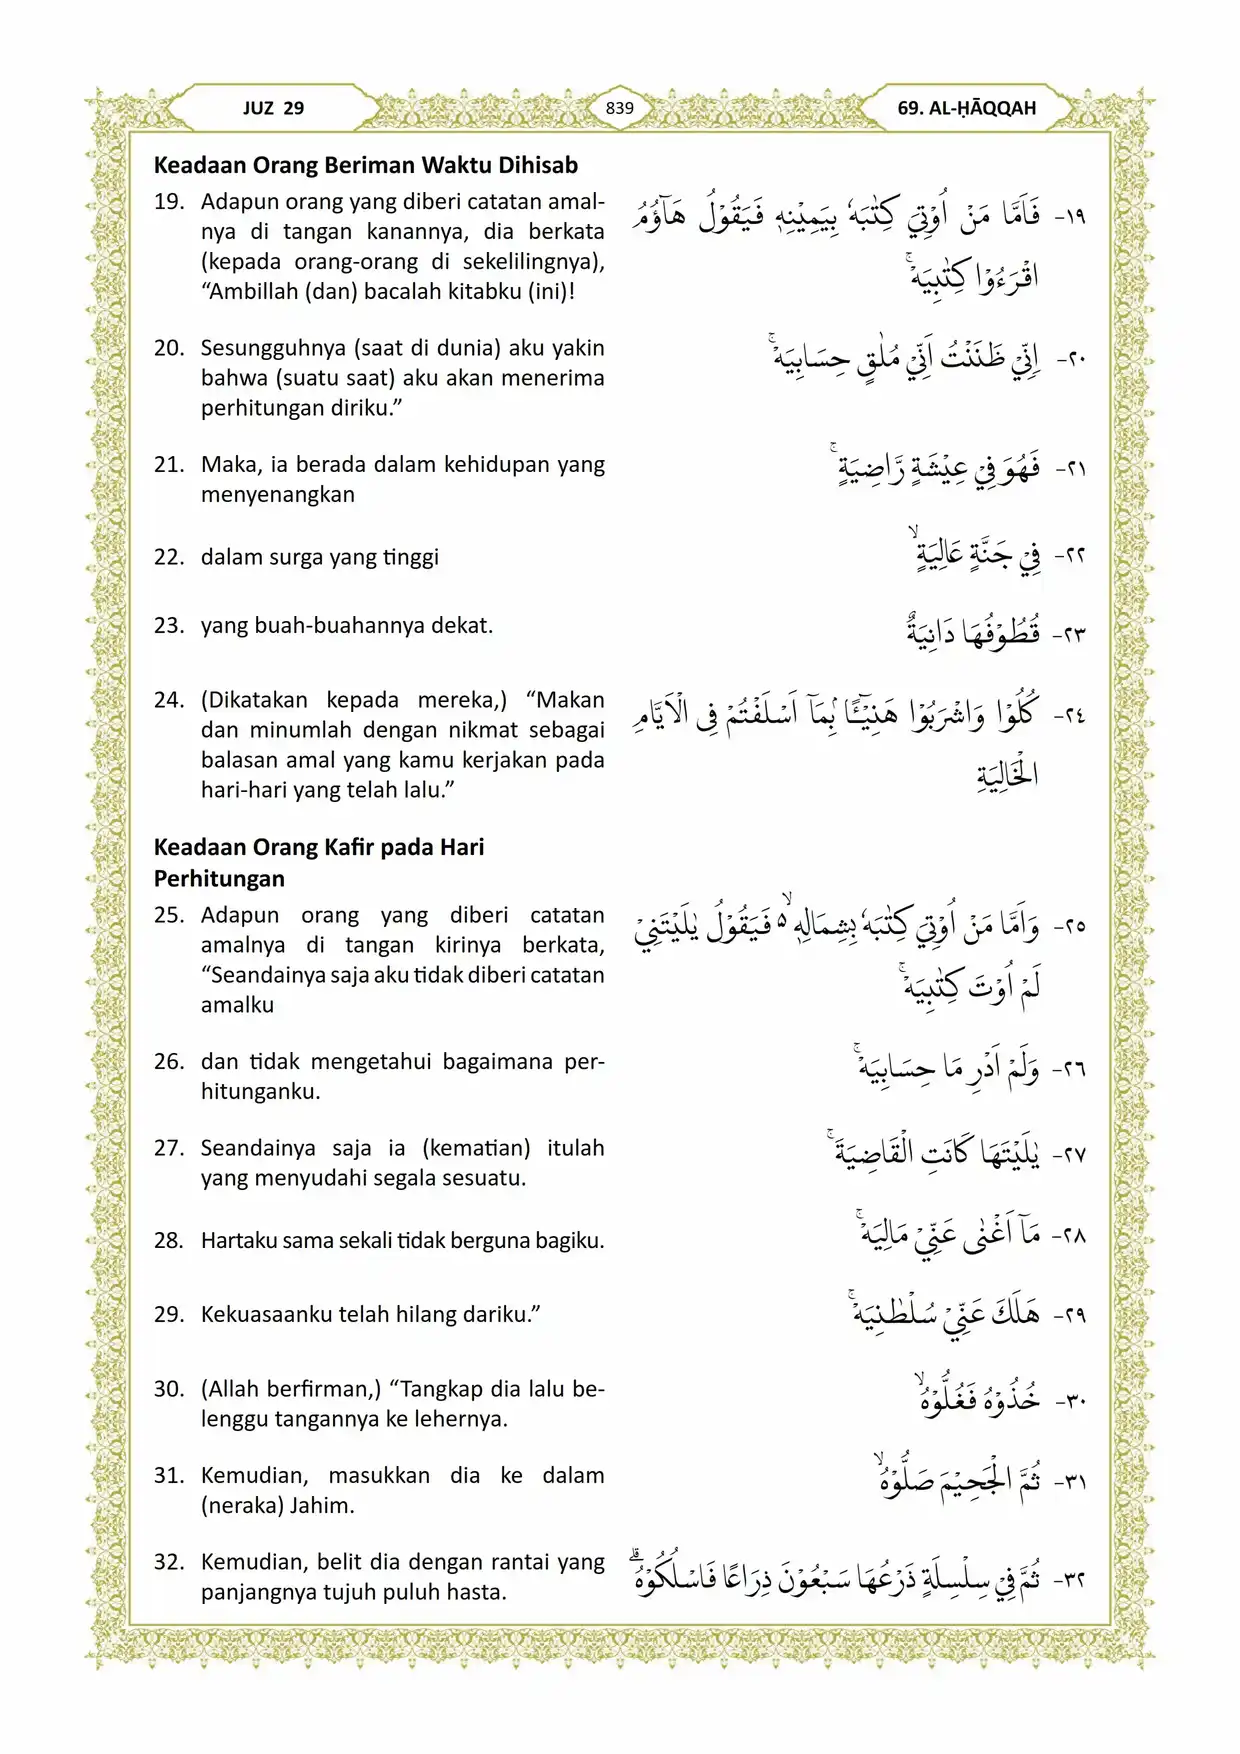 JUZ 29
839
69. AL-ḤĀQQAH
Keadaan Orang Beriman Waktu Dihisab
19. Adapun orang yang diberi catatan amal-
nya di tangan kanannya, dia berkata
(kepada orang-orang di sekelilingnya),
“Ambillah (dan) bacalah kitabku (ini)!
١٩- فَاَمَّا مَنْ اُوْتِيَ كِتٰبَهٗ بِيَمِيْنِهٖ فَيَقُوْلُ هَاۤؤُمُ
اقْرَءُوْا كِتٰبِيَهْۚ
20. Sesungguhnya (saat di dunia) aku yakin
bahwa (suatu saat) aku akan menerima
perhitungan diriku.”
٢٠- اِنِّيْ ظَنَنْتُ اَنِّيْ مُلٰقٍ حِسَابِيَهْۚ
21. Maka, ia berada dalam kehidupan yang
menyenangkan
٢١- فَهُوَ فِيْ عِيْشَةٍ رَّاضِيَةٍۚ
22. dalam surga yang tinggi
٢٢- فِيْ جَنَّةٍ عَالِيَةٍۙ
23. yang buah-buahannya dekat.
٢٣- قُطُوْفُهَا دَانِيَةٌ
24. (Dikatakan kepada mereka,) “Makan
dan minumlah dengan nikmat sebagai
balasan amal yang kamu kerjakan pada
hari-hari yang telah lalu.”
٢٤- كُلُوْا وَاشْرَبُوْا هَنِيْۤـًٔا ۢبِمَآ اَسْلَفْتُمْ فِى الْاَيَّامِ
الْخَالِيَةِ
Keadaan Orang Kafir pada Hari
Perhitungan
25. Adapun orang yang diberi catatan
amalnya di tangan kirinya berkata,
“Seandainya saja aku tidak diberi catatan
amalku
٢٥- وَاَمَّا مَنْ اُوْتِيَ كِتٰبَهٗ بِشِمَالِهٖۙ ە فَيَقُوْلُ يٰلَيْتَنِيْ
لَمْ اُوْتَ كِتٰبِيَهْۚ
26. dan tidak mengetahui bagaimana per-
hitunganku.
٢٦- وَلَمْ اَدْرِ مَا حِسَابِيَهْۚ
27. Seandainya saja ia (kematian) itulah
yang menyudahi segala sesuatu.
٢٧- يٰلَيْتَهَا كَانَتِ الْقَاضِيَةَۚ
28. Hartaku sama sekali tidak berguna bagiku.
٢٨- مَآ اَغْنٰى عَنِّيْ مَالِيَهْۚ
29. Kekuasaanku telah hilang dariku.”
٢٩- هَلَكَ عَنِّيْ سُلْطٰنِيَهْۚ
30. (Allah berfirman,) “Tangkap dia lalu be-
lenggu tangannya ke lehernya.
٣٠- خُذُوْهُ فَغُلُّوْهُۙ
31. Kemudian, masukkan dia ke dalam
(neraka) Jahim.
٣١- ثُمَّ الْجَحِيْمَ صَلُّوْهُۙ
32. Kemudian, belit dia dengan rantai yang
panjangnya tujuh puluh hasta.
٣٢- ثُمَّ فِيْ سِلْسِلَةٍ ذَرْعُهَا سَبْعُوْنَ ذِرَاعًا فَاسْلُكُوْهُۗ